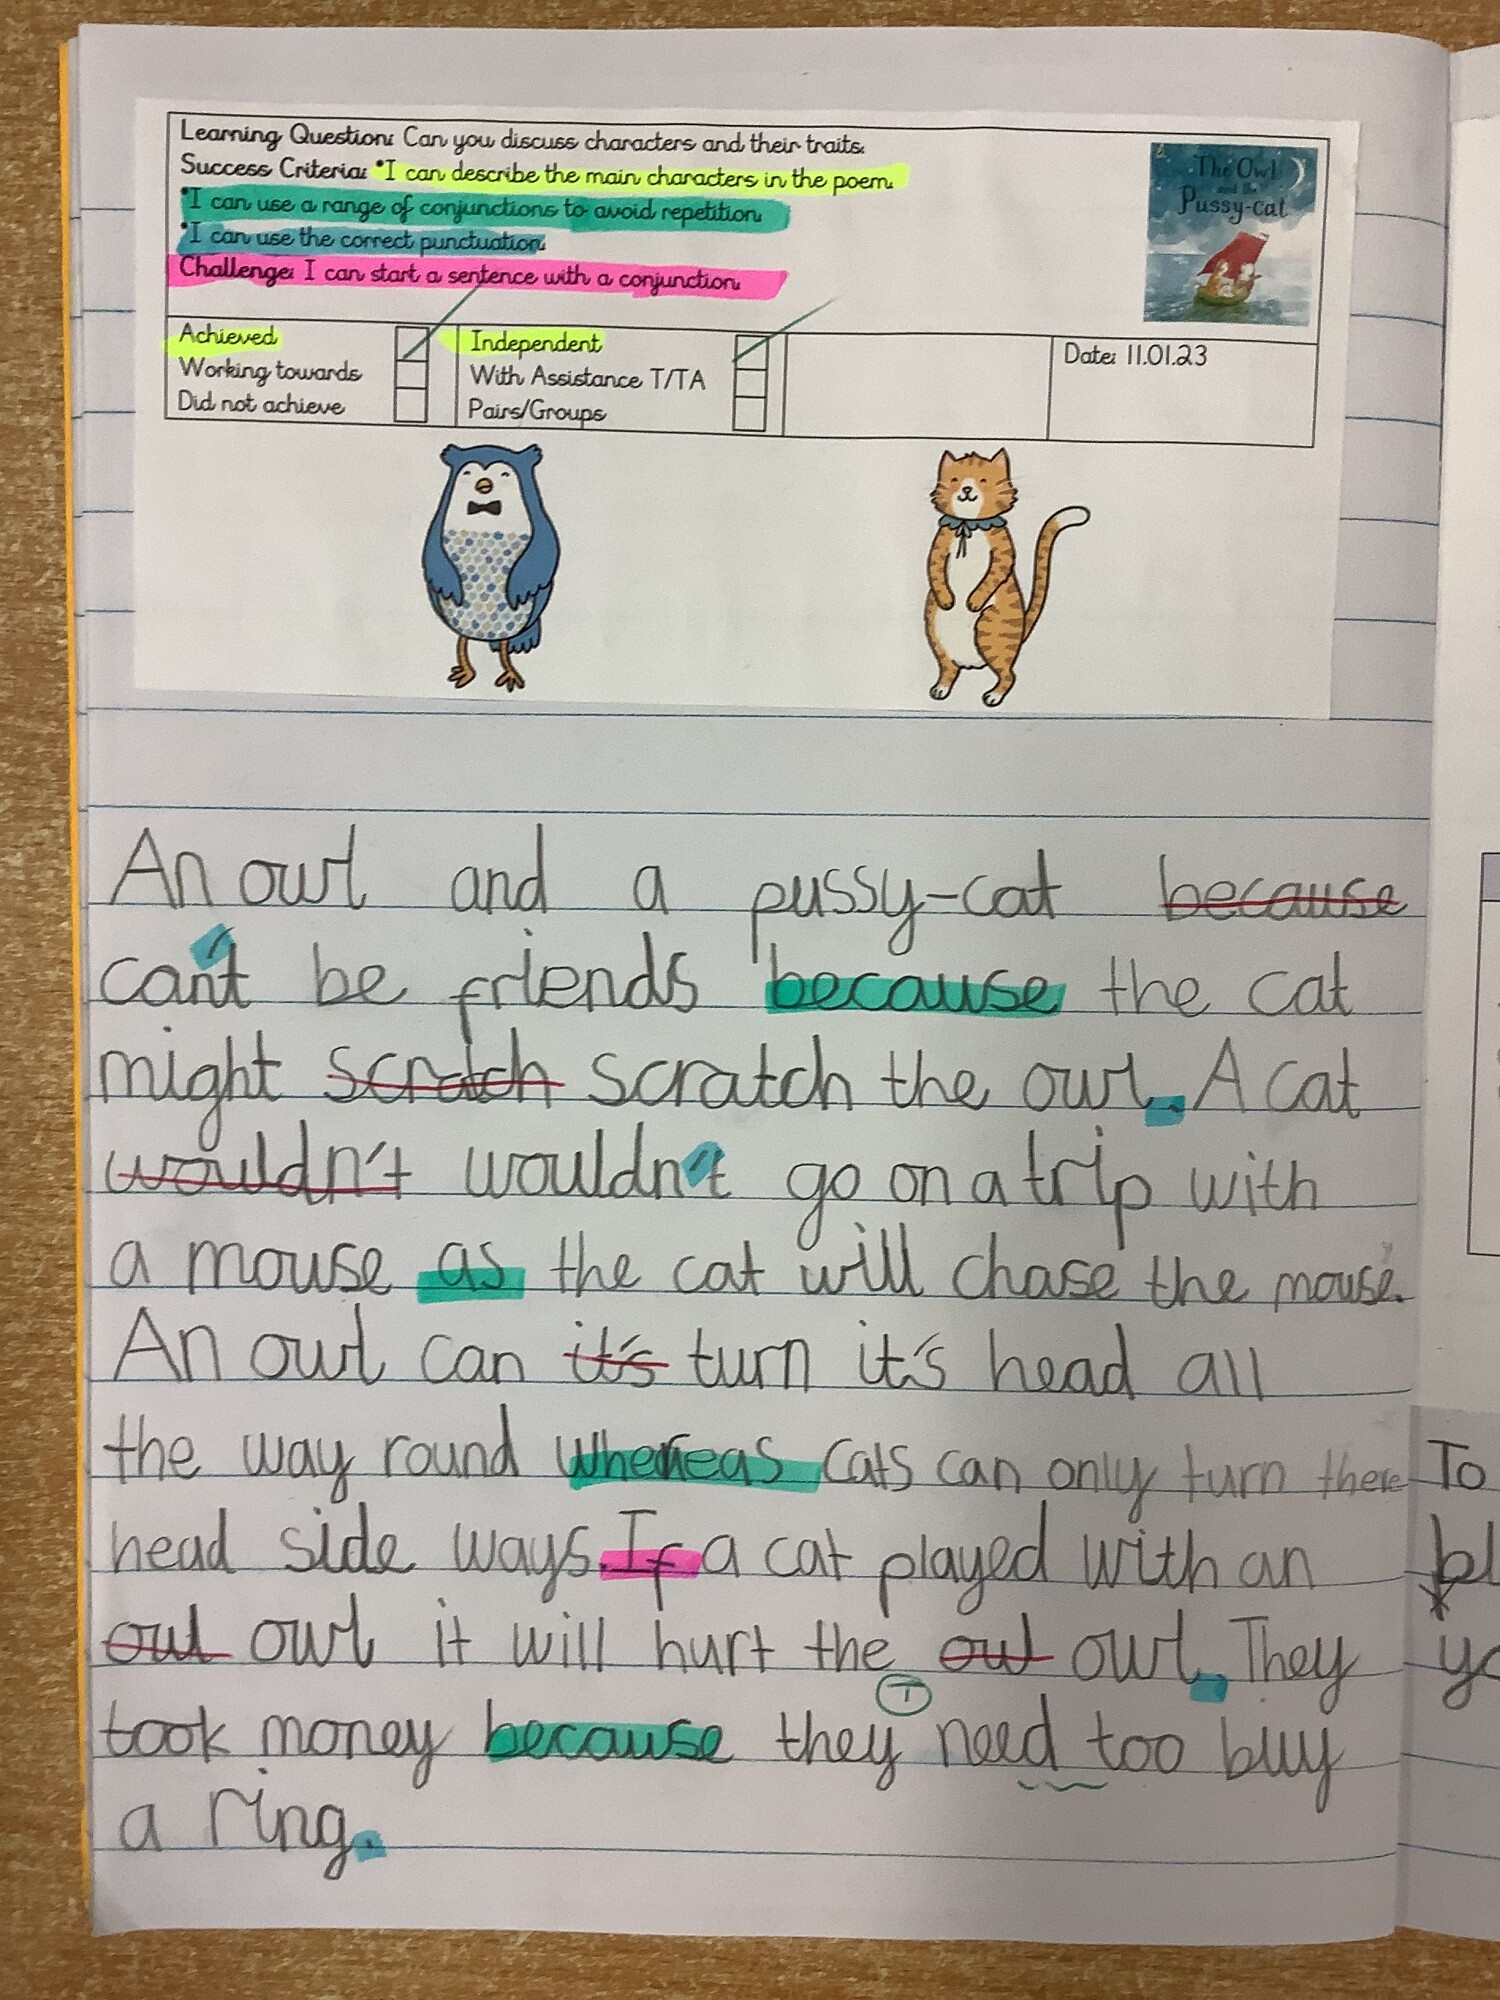 Learning Question: Can you discuss characters and their traits.
Success Criteria: *I can describe the main characters in the poem.
*I can use a range of conjunctions to avoid repetition.
*I can use the correct punctuation.
Challenge: I can start a sentence with a conjunction.
The Owl
and the
Pussy-cat
Achieved
Working towards
Did not achieve
Independent
With Assistance T/TA
Pairs/Groups
Date: 11.01.23
An owl and a pussy-cat because
can't be friends because the cat
might scratch scratch the owl. A cat
wouldn't wouldn't go on a trip with
a mouse as the cat will chase the mouse.
An owl can it's turn it's head all
the way round whereas cats can only turn there
head side ways. If a cat played with an
owl owl it will hurt the owl owl. They
T
took money because they need too buy
a ring.
To